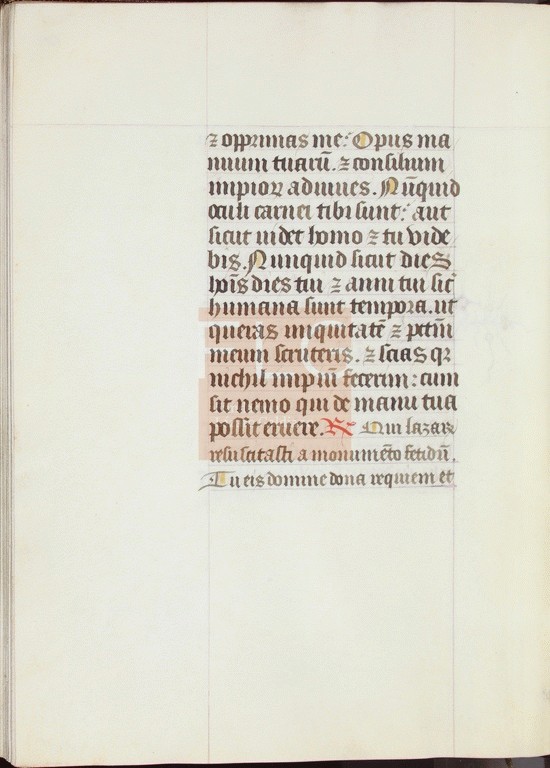 ⁊ opprimas me: Opus ma
nuum tuarū. ⁊ consilium
impioꝝ adiuues. Nūquid
oculi carnei tibi sunt: aut
sicut uidet homo ⁊ tu vide
bis. Nunquid sicut dies
hoīs dies tui ⁊ anni tui sic̄
humana sunt tempora. ut
queras iniquitatē ⁊ pctm̄
meum scruteris. ⁊ scias qꝛ
nichil impiū fecerim: cum
sit nemo qui de manu tua
possit eruere. ℟ Qui lazaꝝ
resuscitasti a monumēto fetidū.
Tu eis domine dona requiem et